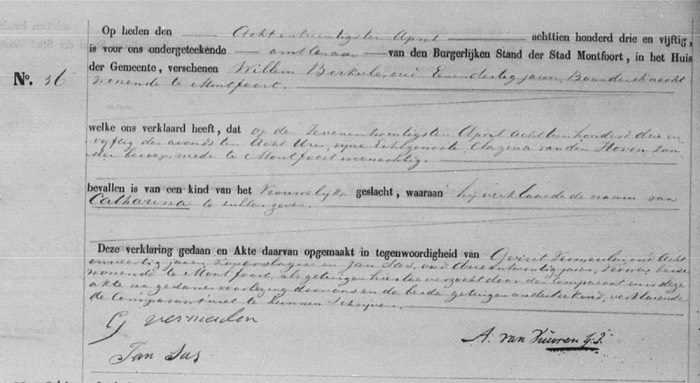 Op heden den Achtentwintigsten April achttien honderd drie en vijftig,
is voor ons ondergeteekende ambtenaar van den Burgerlijken Stand der Stad Montfoort, in het Huis
der Gemeente, verschenen Willem oud Eenendertig jaren, Bouwknecht
No. 36
wonende te Montfoort.
welke ons verklaard heeft, dat op den Zevenentwintigsten April achttienhonderd drie en
vijftig des avonds ten Acht Ure, zijne Echtgenoote, Clazina van den Hoven zon
der beroep mede te Montfoort woonachtig.
bevallen is van een kind van het Vrouwelijke geslacht, waaraan hij verklaarde de naam van
Catharina te zullen geven.
Deze verklaring gedaan en Akte daarvan opgemaakt in tegenwoordigheid van Gerrit Vermeulen, oud Acht
en jaren, en Jan Sas, oud jaren, beide
wonende te Montfoort, als getuigen hiertoe verzocht door den Comparant en is deze
akte na gedane voorlezing door ons en de beide getuigen onderteekend, verklarende
de Comparant niet te kunnen schrijven.
G vermeulen
A. van Vuuren
Jan Sas